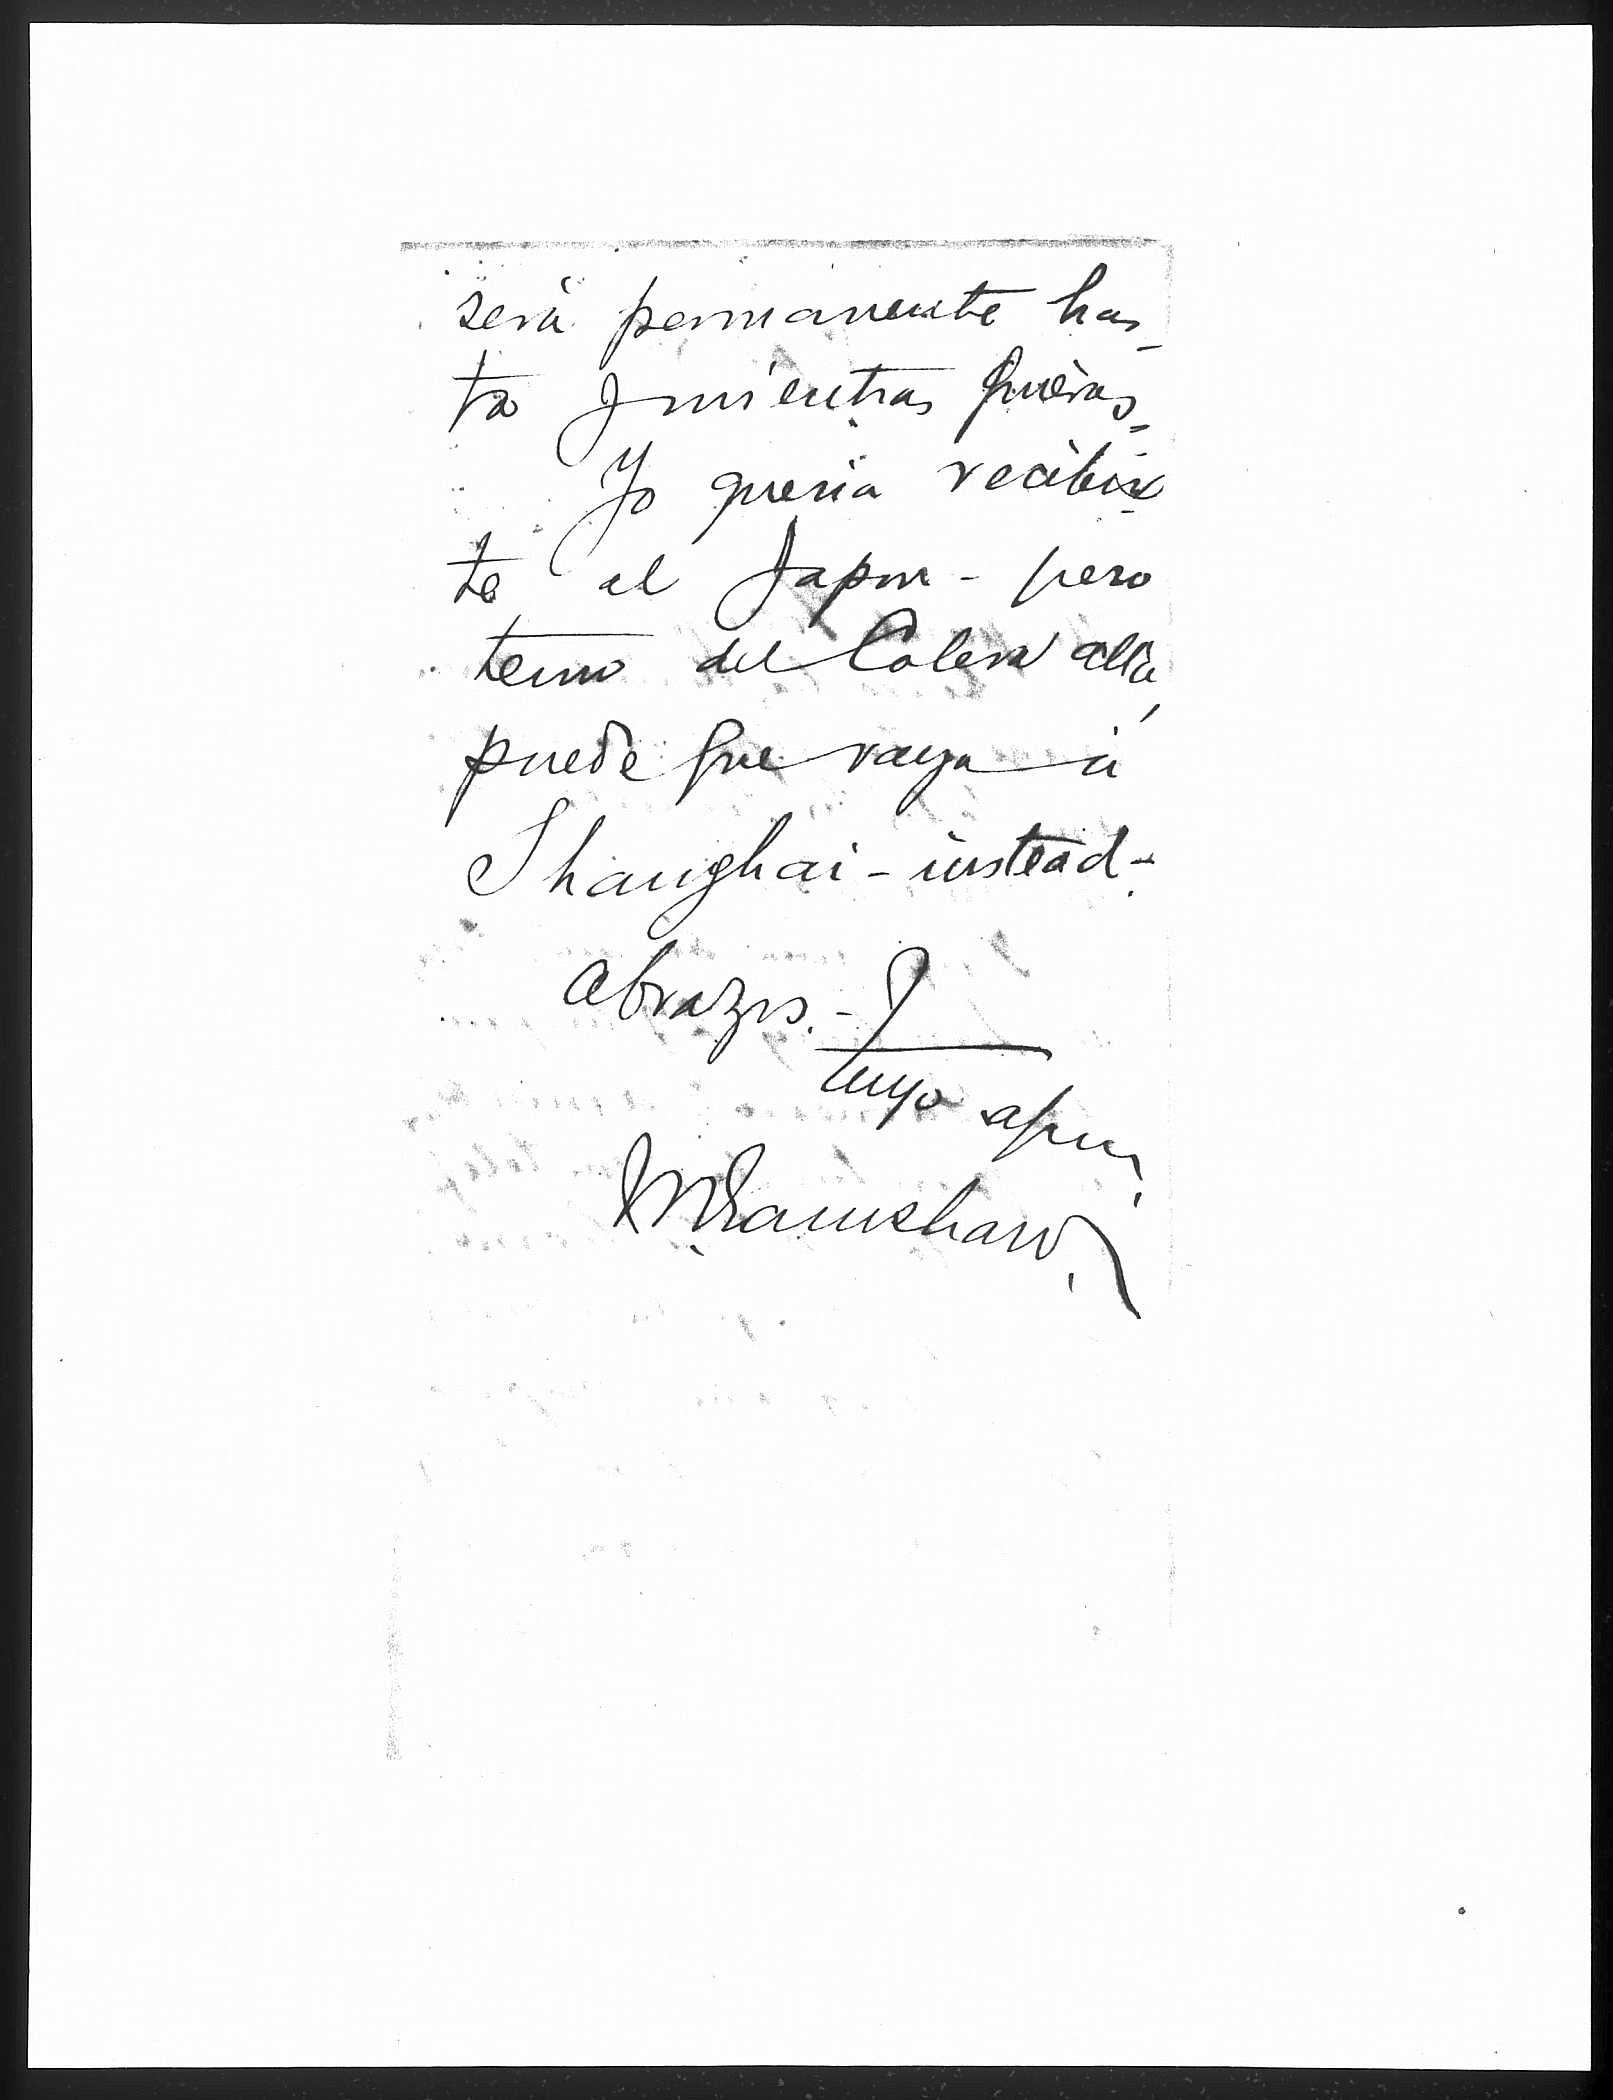 será permanente has-
ta y mientras quieras-
Yo queria recibir
te al Japon - pero
temo del Colera allá,
puede que vaya á
Shanghai - instead -
Abrazos. -
tuyo afmo.